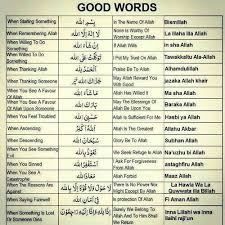 GOOD WORDS
When Starting Something بِسْمِ اللهِ In The Name Of Allah Bismillah
When Remembering Allah لَا إِلَهَ إِلَّا اللهُ None is Worthy Of Worship Except Allah La Ilaha illa Allah
When Willed To Do Something إِنْ شَاءَ اللهُ If Allah Wills In sha Allah
When Willed To Do Something I Put My Trust On Allah Tawakkaltu Ala-Allah
When Thanking Allah الْحَمْدُ لِلَّهِ Praise Be To Allah Alhamdulillah
When Thanking Someone May Allah Reward You With Good jazaka Allah khair
When You See A Favour Of Allah Upon مَا شَاءَ اللهُ Allah Has Willed It Ma sha Allah
When You See A Favour Of Allah Upon بَارَكَ اللهُ May The Blessings Of Allah Be Upon You Baraka Allah
When You Feel Troubled حَسْبِيَ اللهُ Allah Is Sufficient For Me Hasbi ya Allah
When Ascending اللهُ أَكْبَرُ Allah Is The Greatest Allahu Akbar
When Descending سُبْحَانَ اللهِ Glory Be To Allah Subhan Allah
When You See Something Evil
When You Sinned أَسْتَغْفِرُ اللهَ I Ask For Forgiveness From Allah astaghfiru Allah
When You See A Catastrophe Maaz Allah
When The Reasons Are Against There Is No Power Nor Might Except By Allah La Hawla Wa La Quwwata illa Billah
When Saying Farewell فِي أَمَانِ اللهِ In protection Of Allah Fi Aman Allah
When Something Is Lost Or Someone Dies Surely We Belong To Allah And To Him Shall We Return Inna Lillahi wa inna ilaihi raji'un